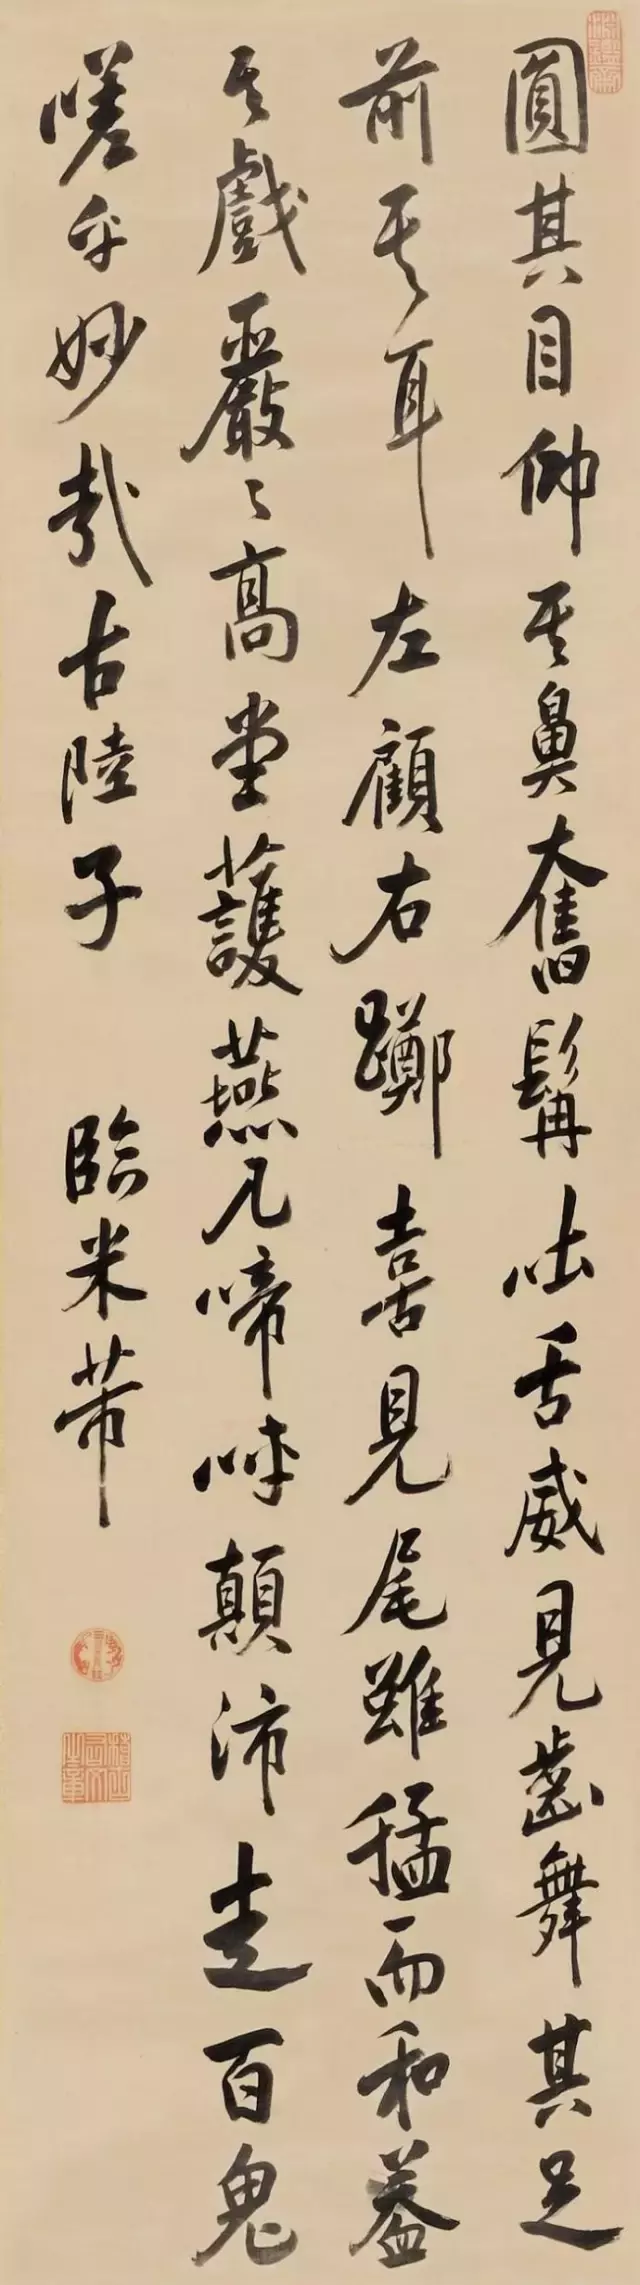 淵鑑齋
圓其目仰其鼻奮髯吐舌威見齒舞其足
前其耳左顧右躑喜見尾雖猛而和蓋
其戲嚴〻高堂護燕几啼呼顛沛走百鬼
嗟乎妙哉古陸子 臨米芾
稽古右文之章